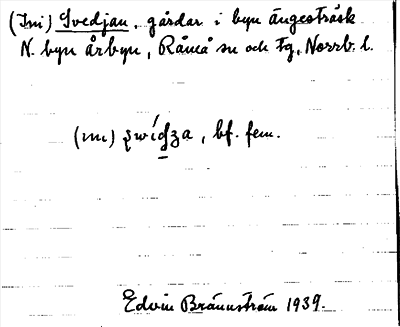 (Ini) Svedjan, gårdar i byn ängesträsk
N. byn årbyn, Råneå sn och tg, Norrb. l.
(ini) , bf. fem.
Edvin Brännström 1939.